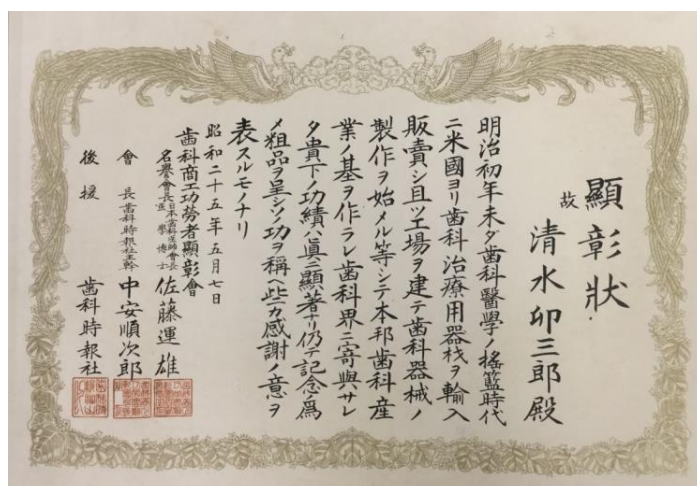 顯彰狀
故 清水卯三郎殿
明治初年未ダ歯科醫學ノ搖籃時代
ニ米國ヨリ歯科治療用器材ヲ輸入
販賣シ且ツ工場ヲ建テ歯科器械ノ
製作ヲ始メル等シテ本邦歯科産
業ノ基ヲ作ラレ歯科界ニ寄與サレ
タ貴下ノ功績ハ眞ニ顯著ナリ仍テ記念ノ爲
メ粗品ヲ呈シソノ功ヲ稱ヘ些カ感謝ノ意ヲ
表スルモノナリ
昭和二十五年五月七日
歯科商工功勞者顯彰會
名譽會長 日本歯科医師會長 医學博士 佐藤運雄
會長 歯科時報社主幹 中安順次郎
後援 歯科時報社